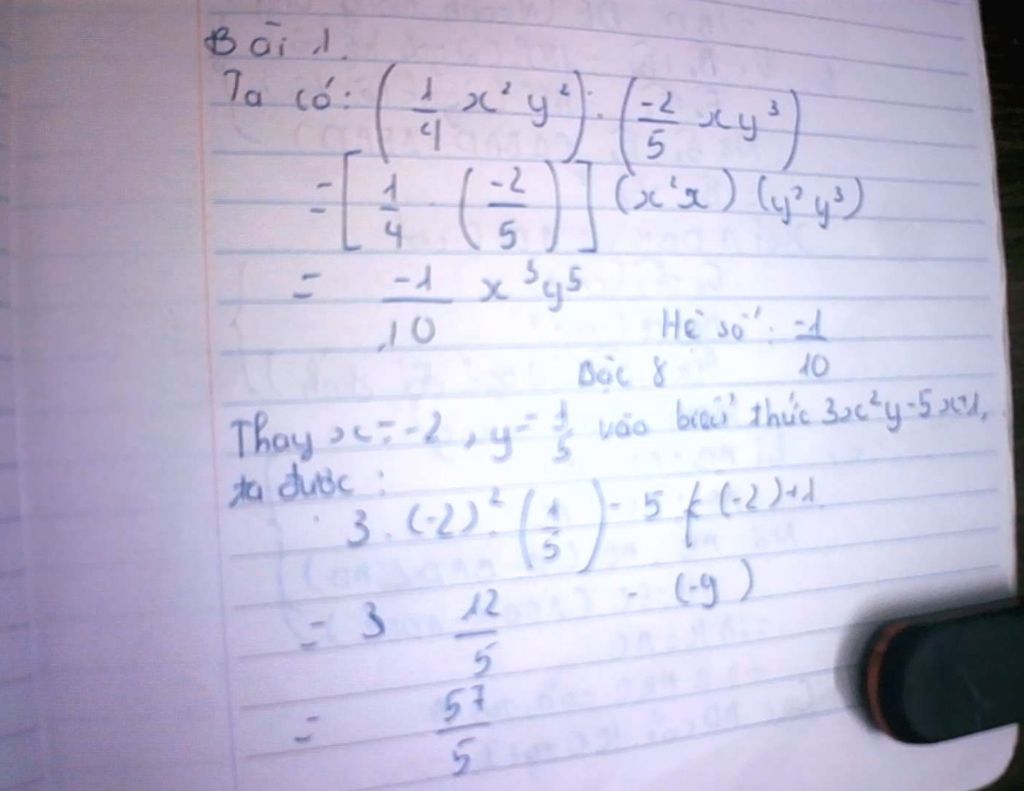 Bài 1.
Ta có: (1/4 x² y²) . (-2/5 xy³)
= [1/4 . (-2/5)] (x²x) (y²y³)
= -1/10 x³y⁵
Hệ số: -1/10
Bậc 8
Thay x = -2, y = 1/5 vào biểu thức 3x²y-5x+1,
ta được:
3. (-2)². (1/5) - 5 (-2)+1
= 3 12/5 - (-9)
= 57/5